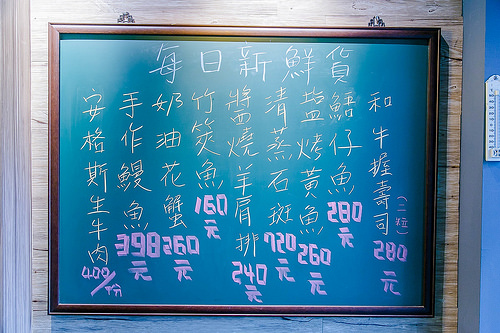 每日新鮮貨
和牛握壽司(二粒)280元
鮚仔魚280元
鹽烤黃魚260元
清蒸石斑720元
醬燒羊肩排240元
竹筴魚160元
奶油花蟹260元
手作鰻魚398元
安格斯生牛肉400/份